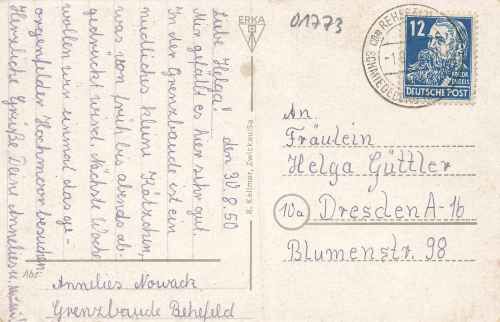 den 30.8.50
Liebe Helga!
Mir gefällt es hier sehr gut.
In der Grenzbaude ist ein
niedliches kleines Kätzchen,
was von früh bis abends ab-
gedrückt wird. Nächste Woche
wollen wir einmal das ge-
orgenfelder Hochmoor besuchen.
Herzliche Grüße Deine Annelies u. Mutti!
Abs:
Annelies Nowack
Grenzbaude Rehefeld
ERKA
R. Kallmer, Zwickau/Sa.
01773
REHEFELD
SCHMIEDEBERG
12
FRIEDR
ENGELS
DEUTSCHE POST
An
Fräulein
Helga Güttler
10a Dresden A-16
Blumenstr. 98